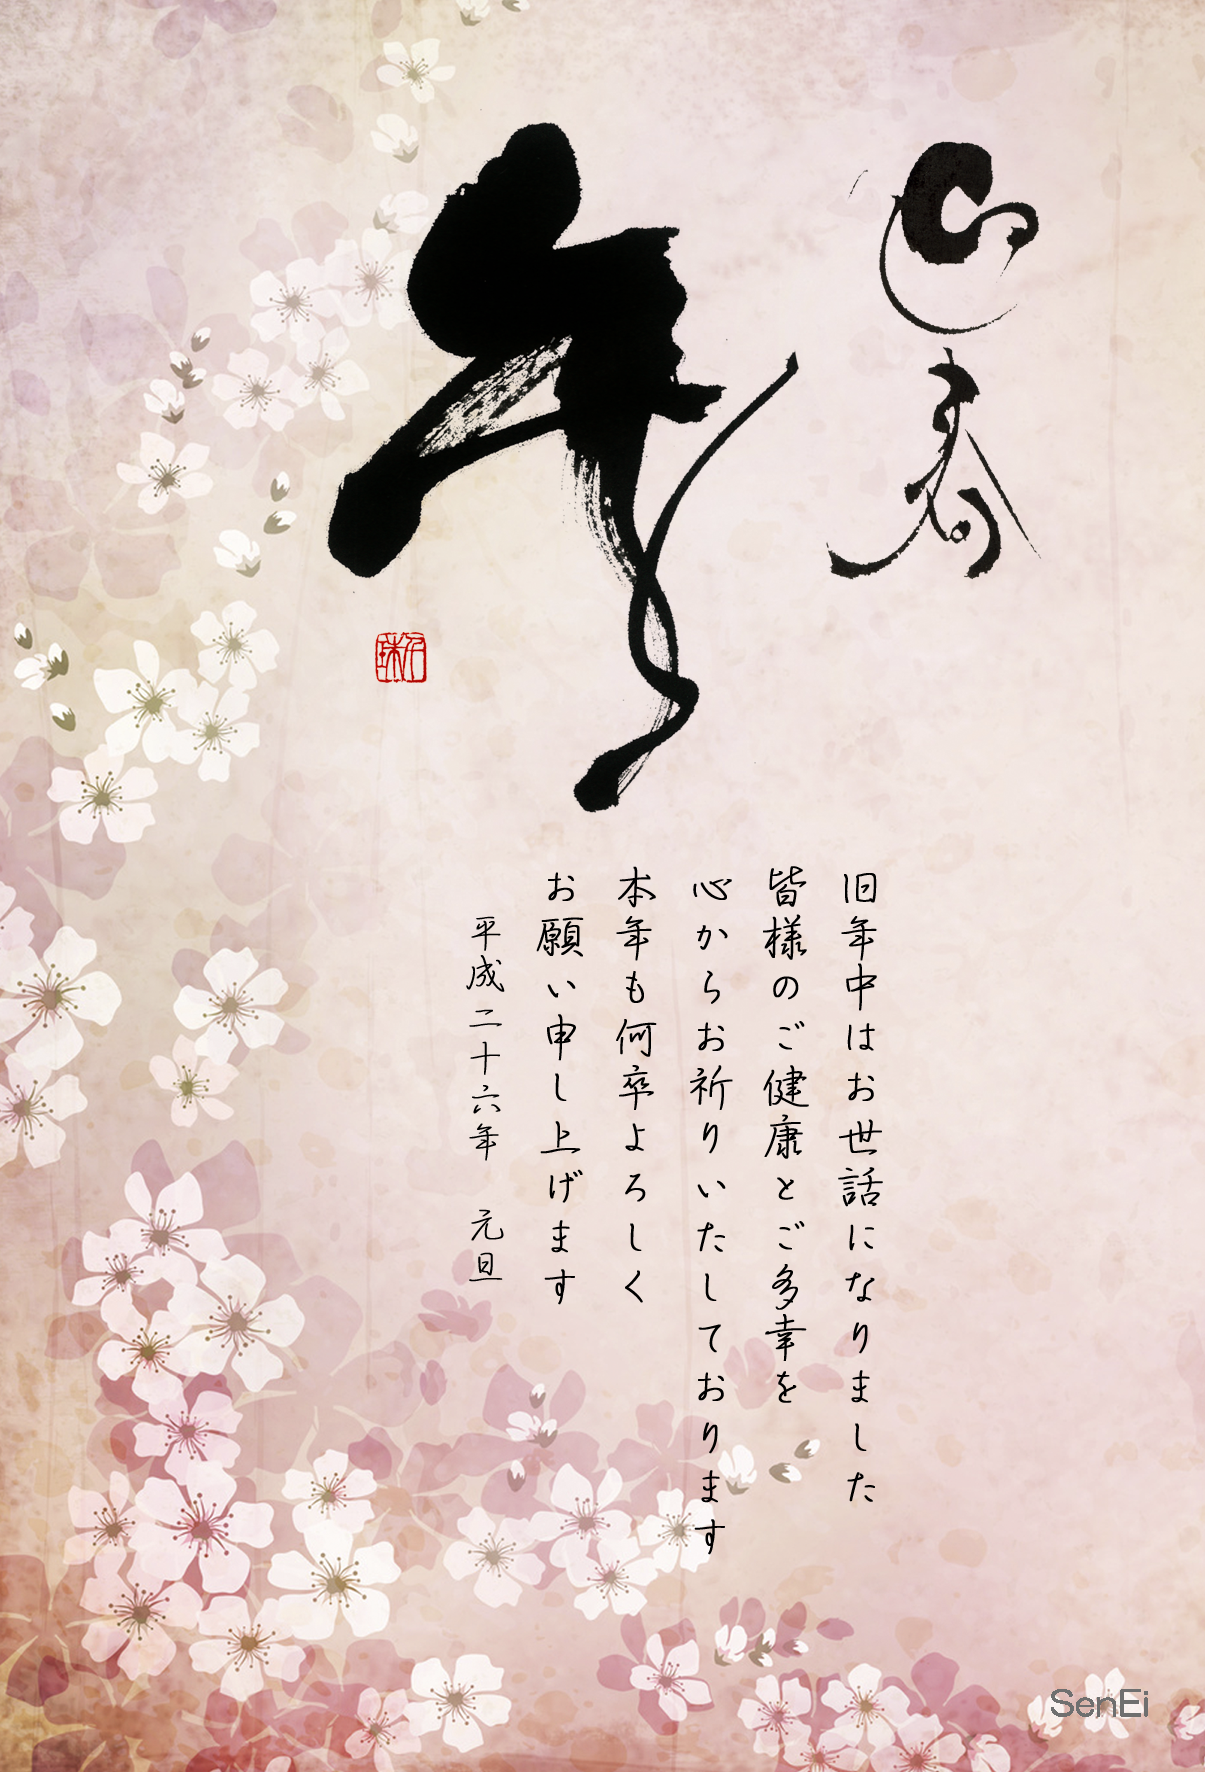 迎春
午
旧年中はお世話になりました
皆様のご健康とご多幸を
心からお祈りいたしております
本年も何卒よろしく
お願い申し上げます
平成二十六年 元旦
SenEi